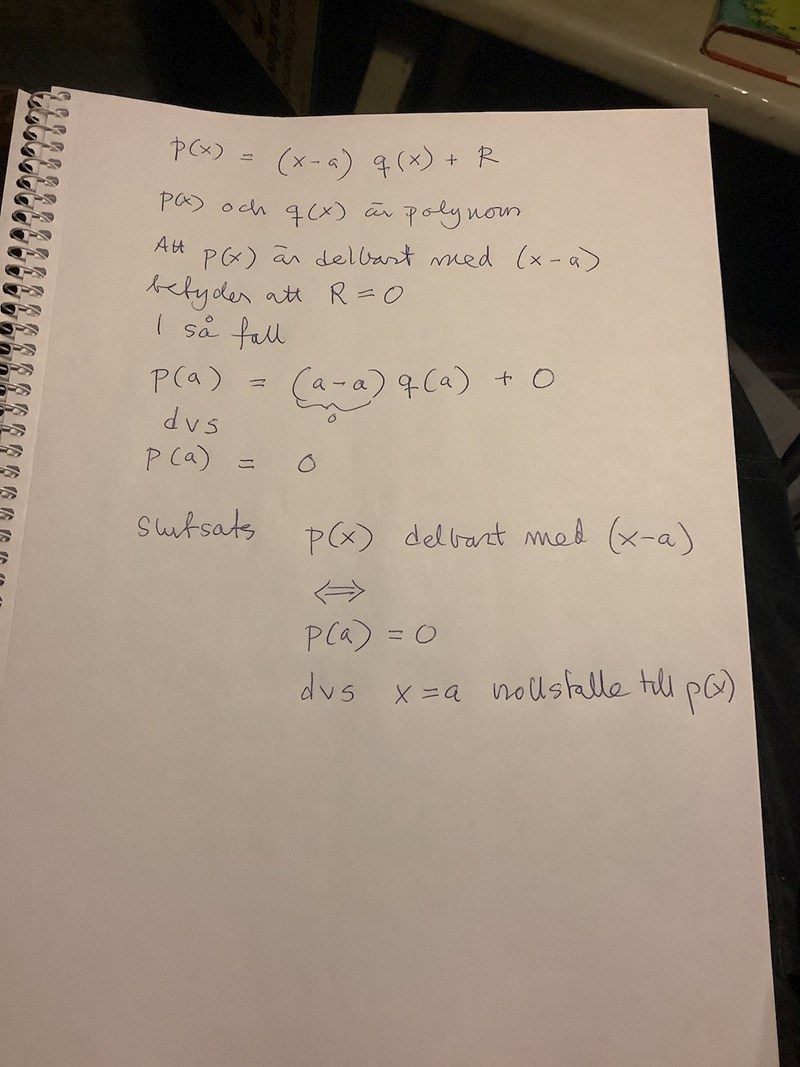 p(x) = (x-a) q(x) + R
p(x) och q(x) är polynom
Att p(x) är delbart med (x-a)
betyder att R = 0
I så fall
p(a) = (a-a) q(a) + 0
0
dvs
p(a) = 0
Slutsats p(x) delbart med (x-a)
⇔
p(a) = 0
dvs x = a nollställe till p(x)